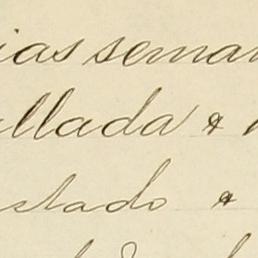 ias seman
llada &
stado &